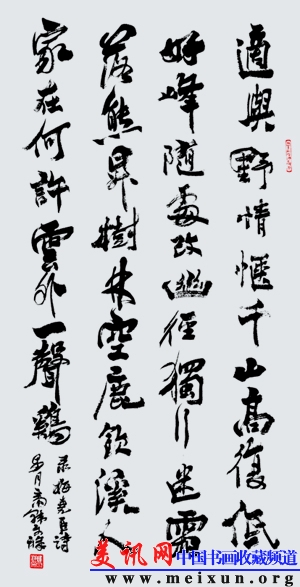 適與野情愜千山高復低
好峰隨處改幽徑獨行迷霜
落熊昇樹林空鹿飲溪人
家在何許雲外一聲鷄
录梅尧臣詩
美讯网 中国书画收藏频道
www.meixun.org